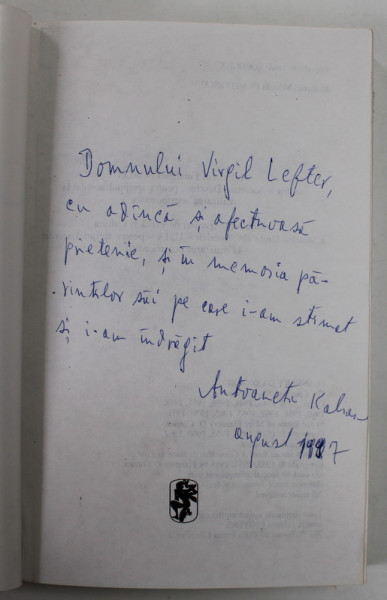 Domnului Virgil Lefter,
cu adîncă și afectuoasă
prietenie, și în memoria pă-
rintilor săi pe care i-am stimat
și i-am îndrăgit
august 1997